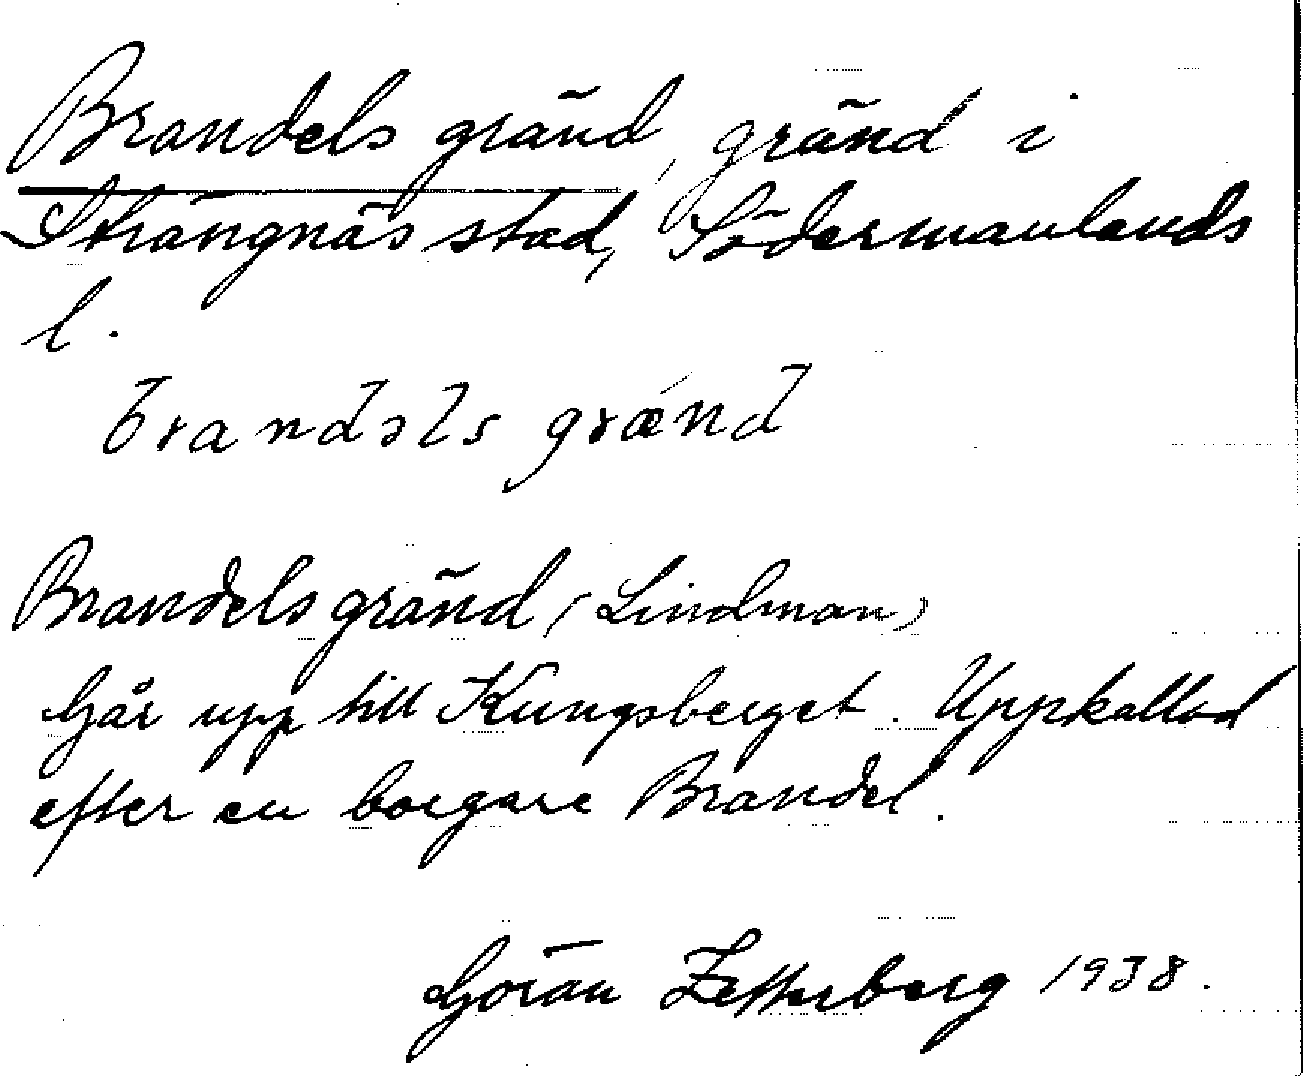 Brandels gränd, gränd i
Strängnäs stad, Södermanlands
l.
brandəls grǽnd
Brandels gränd (Lindman)
Går upp till Kungsberget. Uppkallad
efter en borgare Brandel.
Göran Zetterberg 1938.